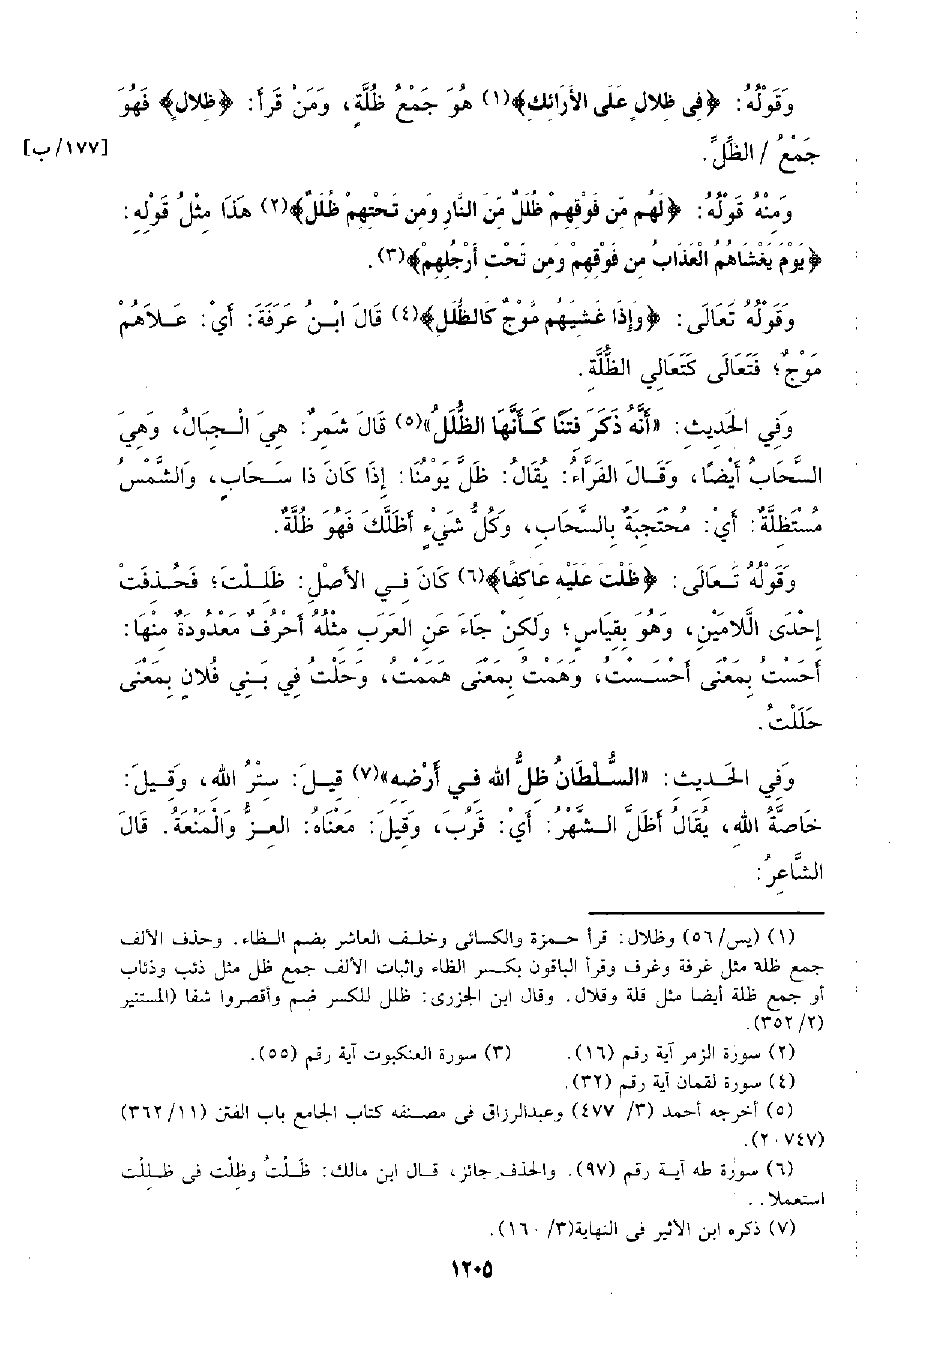 وَقَوْلُهُ: ﴿فِى ظِلالٍ عَلَى الأَرَائِك﴾(١) هُوَ جَمْعُ ظُلَّةٍ، وَمَنْ قَرَأَ: ﴿ظِلالٍ﴾ فَهُوَ
جَمْعُ / الظِّلِّ.
[١٧٧/ب]
وَمِنْهُ قَوْلُهُ: ﴿لَهُم مِّن فَوْقِهِمْ ظُلَلٌ مِّنَ النَّارِ وَمِن تَحْتِهِمْ ظُلَلٌ﴾(٢) هَذَا مِثْلُ قَوْلِهِ:
﴿يَوْمَ يَغْشَاهُمُ الْعَذَابُ مِن فَوْقِهِمْ وَمِن تَحْتِ أَرْجُلِهِمْ﴾(٣).
وَقَوْلُهُ تَعَالَى: ﴿وَإِذَا غَشِيَهُم مَّوْجٌ كَالظُّلَلِ﴾(٤) قَالَ ابْنُ عَرَفَةَ: أَيْ: عَلاَهُمْ
مَوْجٌ؛ فَتَعَالَى كَتَعَالِي الظُّلَّةِ.
وَفِي الحَدِيثِ: «أَنَّهُ ذَكَرَ فِتَنًا كَأَنَّهَا الظُّلَلُ»(٥) قَالَ شَمِرٌ: هِيَ الْجِبَالُ، وَهِيَ
السَّحَابُ أَيْضًا، وَقَالَ الفَرَّاءُ: يُقَالُ: ظَلَّ يَوْمُنَا: إِذَا كَانَ ذَا سَحَابٍ، وَالشَّمْسُ
مُسْتَظِلَّةٌ: أَيْ: مُحْتَجِبَةٌ بِالسَّحَابِ، وَكُلُّ شَيْءٍ أَظَلَّكَ فَهُوَ ظُلَّةٌ.
وَقَوْلُهُ تَعَالَى: ﴿ظَلْتَ عَلَيْهِ عَاكِفًا﴾(٦) كَانَ فِي الأَصْلِ: ظَلِلْتَ؛ فَحُذِفَتْ
إِحْدَى اللَّامَيْنِ، وَهُوَ بِقِيَاسٍ؛ وَلَكِنْ جَاءَ عَنِ العَرَبِ مِثْلُهُ أَحْرُفٌ مَعْدُودَةٌ مِنْهَا:
أَحَسْتُ بِمَعْنَى أَحْسَسْتُ، وَهَمْتُ بِمَعْنَى هَمَمْتُ، وَحَلْتُ فِي بَنِي فُلانٍ بِمَعْنَى
حَلَلْتُ.
وَفِي الحَدِيثِ: «السُّلْطَانُ ظِلُّ اللهِ فِي أَرْضِهِ»(٧) قِيلَ: سِتْرُ اللهِ، وَقِيلَ:
خَاصَّةُ اللهِ، يُقَالُ أَظَلَّ الشَّهْرُ: أَيْ: قَرُبَ، وَقِيلَ: مَعْنَاهُ: العِزُّ وَالْمَنَعَةُ. قَالَ
الشَّاعِرُ:
(١) (يس/ ٥٦) وظلال: قرأ حمزة والكسائى وخلف العاشر بضم الظاء. وحذف الألف
جمع ظلة مثل غرفة وغرف وقرأ الباقون بكسر الظاء واثبات الألف جمع ظل مثل ذئب وذئاب
أو جمع ظلة أيضا مثل قلة وقلال. وقال ابن الجزرى: ظلل للكسر ضم وأقصروا شفا (المستنير
٢/ ٣٥٢).
(٢) سورة الزمر آية رقم (١٦). (٣) سورة العنكبوت آية رقم (٥٥).
(٤) سورة لقمان آية رقم (٣٢).
(٥) أخرجه أحمد (٣/ ٤٧٧) وعبدالرزاق فى مصنفه كتاب الجامع باب الفتن (١١/ ٣٦٢)
(٢٠٧٤٧).
(٦) سورة طه آية رقم (٩٧). والحذف جائز، قال ابن مالك: ظَلْتُ وظِلْت فى ظللْت
استعملا..
(٧) ذكره ابن الأثير فى النهاية(٣/ ١٦٠).
١٢٠٥